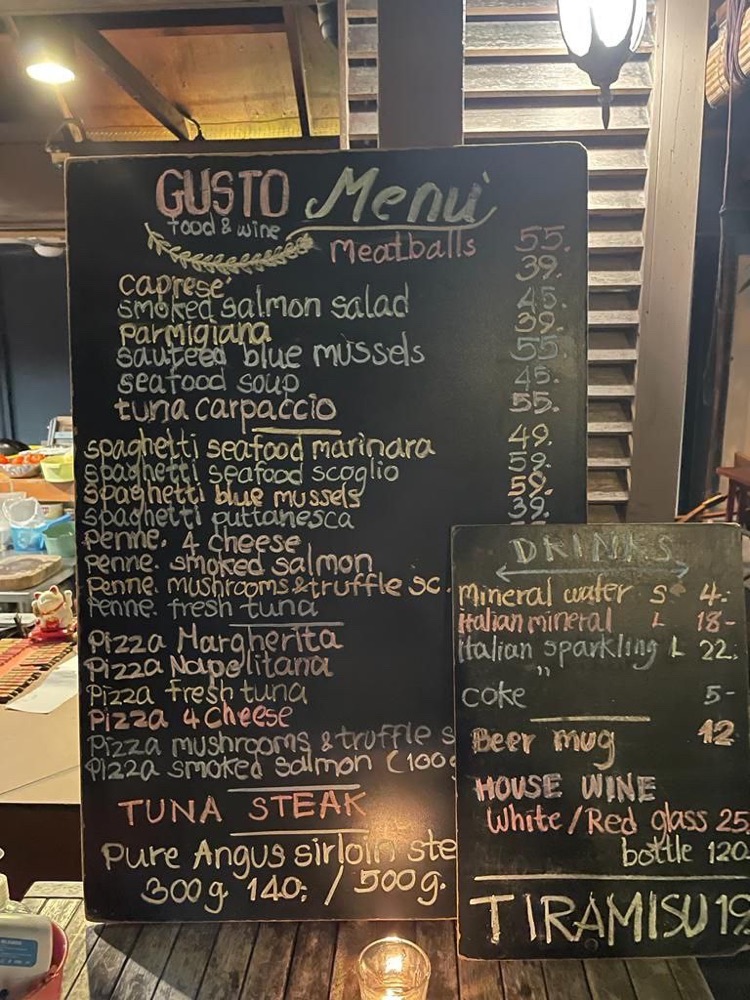 GUSTO Menu'
food & wine
Meatballs 55.
caprese' 39.
smoked salmon salad 45.
parmigiana 39.
sauteed blue mussels 55.
seafood soup 45.
tuna carpaccio 55.
spaghetti seafood marinara 49.
spaghetti seafood scoglio 59.
spaghetti blue mussels 59.
spaghetti puttanesca 39.
penne. 4 cheese
penne. smoked salmon
Penne. mushrooms & truffle sc.
Penne. fresh tuna
Pizza Margherita
Pizza Napolitana
Pizza fresh tuna
Pizza 4 cheese
Pizza mushrooms & truffle s
Pizza smoked salmon (100g
TUNA STEAK
Pure Angus sirloin ste
300g 140: / 500g.
DRINKS
Mineral water S 4.-
Italian mineral L 18-
Italian sparkling L 22.
"
coke 5-
Beer mug 12
HOUSE WINE
White/Red glass 25
bottle 120
TIRAMISU 19